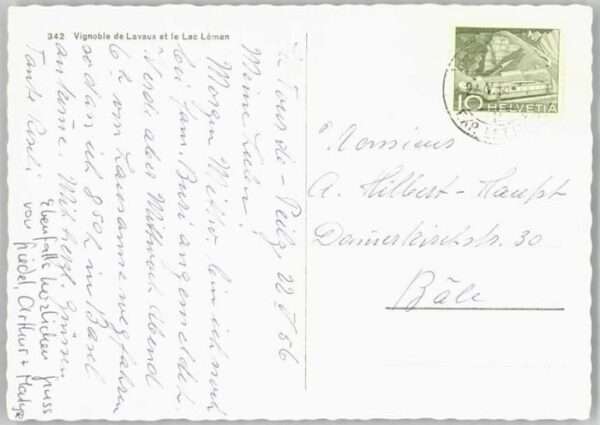 342 Vignoble de Lavaux et le Lac Léman
La Tour-de-Peilz, 22. V. 56
Meine Lieben!
Morgen Mittw. bin ich noch
bei Fam. Buri angemeldet.
Werde aber Mittwoch Abend
6 h von Lausanne wegfahren
so dass ich 8 50 h in Basel
ankomme. Mit herzl. Grüssen
Tante Rosli
Ebenfalls herzlichen Gruss
von Friedel, Arthur +
10 HELVETIA
Monsieur
A. Hilbert-Haupt
Dannerkirchstr. 30
Bâle